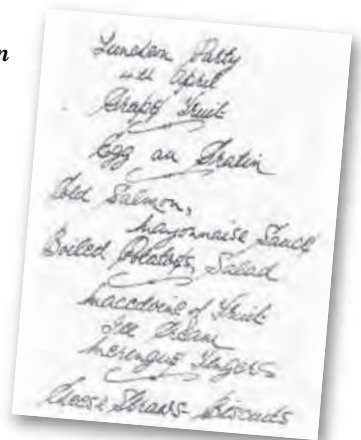 n
Luncheon Party
11th April
Grape Fruit
Egg au Gratin
Cold Salmon,
Mayonnaise Sauce
Boiled Potatoes, Salad
Macedoine of Fruit
Ice Cream
Meringue Fingers
Cheese Straws - Biscuits